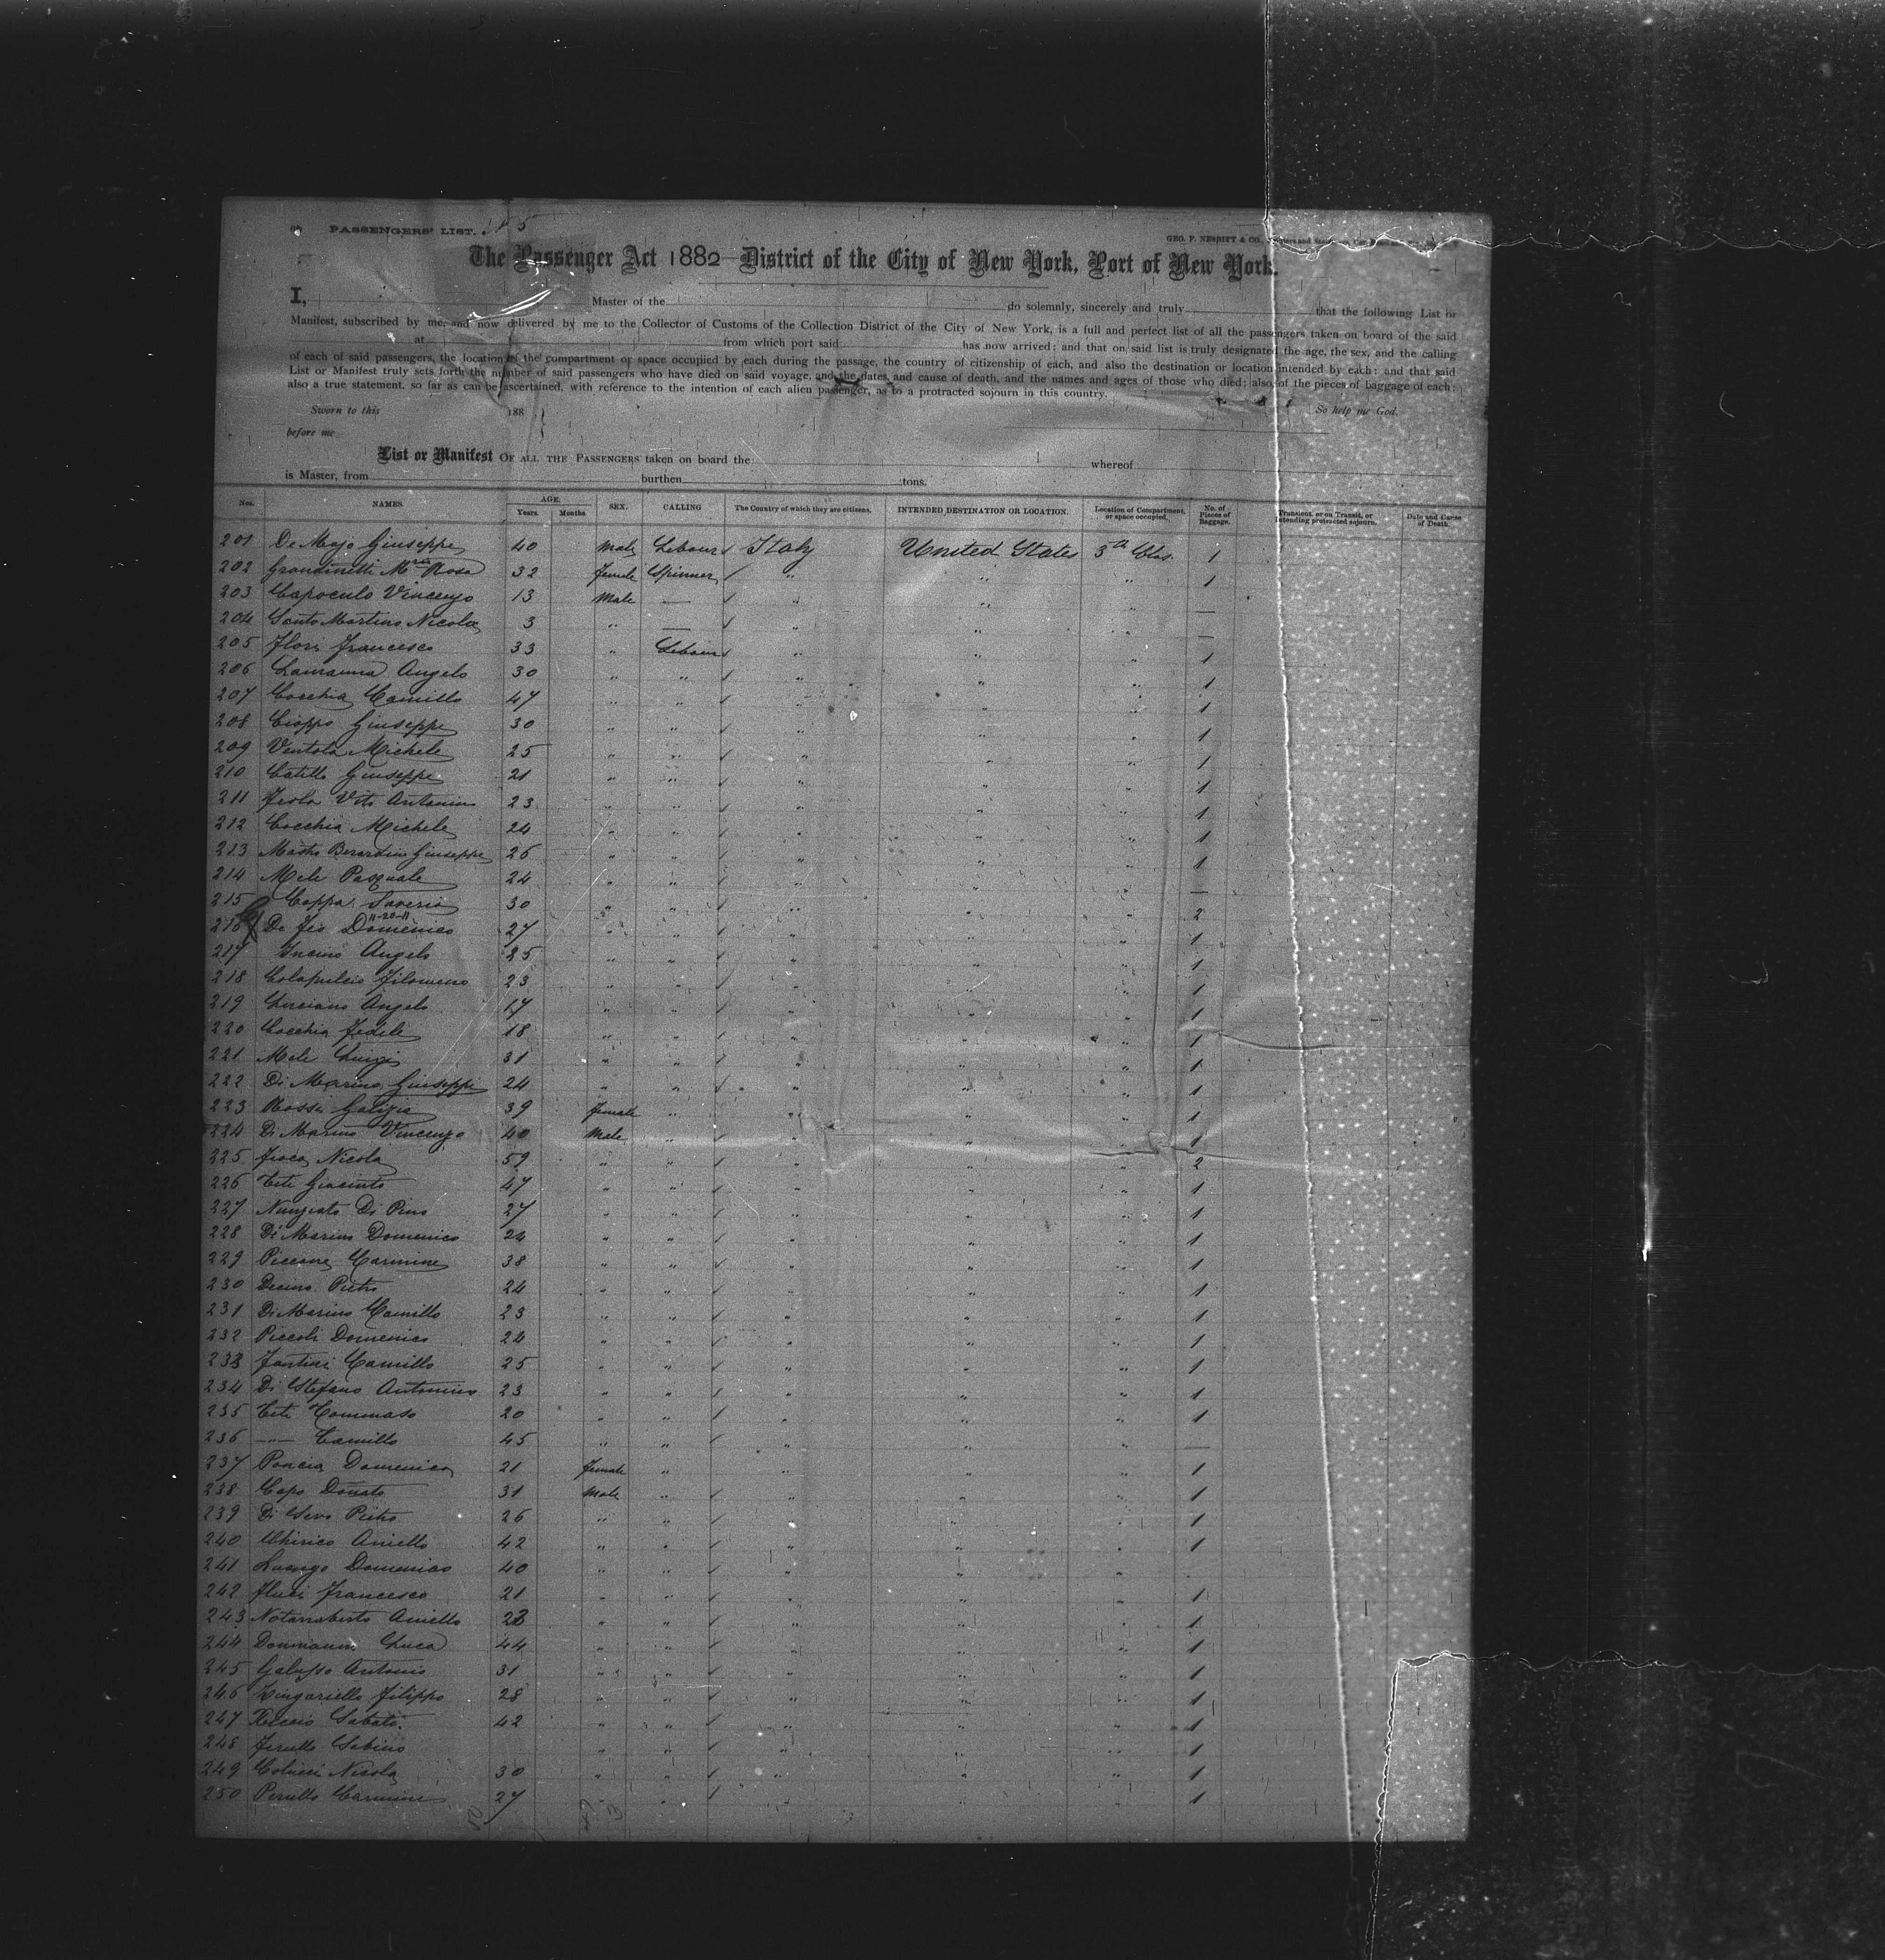 PASSENGERS' LIST. No 5
GEO. F. NESBITT & CO.,
The Passenger Act 1882 District of the City of New York, Port of New York.
I, Master of the do solemnly, sincerely and truly that the following List or
Manifest, subscribed by me, and now delivered by me to the Collector of Customs of the Collection District of the City of New York, is a full and perfect list of all the passengers taken on board of the said
at from which port said has now arrived; and that on said list is truly designated the age, the sex, and the calling
of each of said passengers, the location of the compartment or space occupied by each during the passage, the country of citizenship of each, and also the destination or location intended by each: and that said
List or Manifest truly sets forth the number of said passengers who have died on said voyage, and the dates and cause of death, and the names and ages of those who died; also, of the pieces of baggage of each;
also a true statement, so far as can be ascertained, with reference to the intention of each alien passenger, as to a protracted sojourn in this country.
Sworn to this 188 So help me God.
before me
List or Manifest OF ALL THE PASSENGERS taken on board the whereof
is Master, from burthen tons.
Nos. NAMES. AGE. Years. Months. SEX. CALLING The Country of which they are citizens. INTENDED DESTINATION OR LOCATION. Location of Compartment, or space occupied. No. of Pieces of Baggage. Transient, or on Transit, or intending protracted sojourn. Date and Cause of Death.
201 Giuseppe 40 Male Italy United States 3 1
202 Rosa 32 Female Spinner " " " 1
203 Capoculo Vincenzo 13 Male — " " " —
204 Santo Martino Nicola 3 " — " " —
205 Flori Francesco 33 " " " " 1
206 Angelo 30 " " " " " 1
207 Cocchia Camillo 47 " " " " " 1
208 Cioppo Giuseppe 30 " " " " " 1
209 Ventola Michele 25 " " " " " 1
210 Catillo Giuseppe 21 " " " " " 1
211 Vito Antonino 23 " " " " " 1
212 Cocchia Michele 24 " " " " " 1
213 Mastro Berardino Giuseppe 26 " " " " " 1
214 Mele Pasquale 24 " " " " " —
215 Coppa Saverio 30 " " " " " 2
11-20-11
216 De Domenico 27 " " " " " 1
217 Angelo 25 " " " " " 1
218 Filomeno 23 " " " " " 1
219 Luciano Angelo 17 " " " " " 1
220 Cocchia Fedele 18 " " " " " 1
221 Mele Luigi 31 " " " " " 1
222 Di Marino Giuseppe 24 " " " " " 1
223 Rossi 39 Female " " " " 1
224 Di Marino Vincenzo 40 Male " " " " 1
225 Nicola 59 " " " " " 2
226 Teti Giacinto 47 " " " " " 1
227 Nunziato Di Pino 27 " " " " " 1
228 Di Marino Domenico 24 " " " " " 1
229 Piccone Carmine 38 " " " " " 1
230 Pietro 24 " " " " " 1
231 Di Marino Camillo 23 " " " " " 1
232 Piccoli Domenico 24 " " " " " 1
233 Fantini Camillo 25 " " " " " 1
234 Di Stefano Antonino 23 " " " " " 1
235 Teti Tommaso 20 " " " " " 1
236 —"— Camillo 45 " " " " " —
237 Domenica 21 Female " " " " 1
238 Capo Donato 31 Male " " " " 1
239 Di Pietro 26 " " " " " 1
240 Chirico Aniello 42 " " " " " 1
241 Luongo Domenico 40 " " " " "
242 Francesco 21 " " " " " 1
243 Notarroberto Aniello " " " " " 1
244 Luca 44 " " " " " 1
245 Antonio 31 " " " " " 1
246 Zingariello Filippo 28 " " " " " 1
247 Sabato 42 " " " " " 1
248 Sabino " " " " " 1
249 Colucci Nicola 30 " " " " " 1
250 Perullo Carmine 27 " " " " " 1